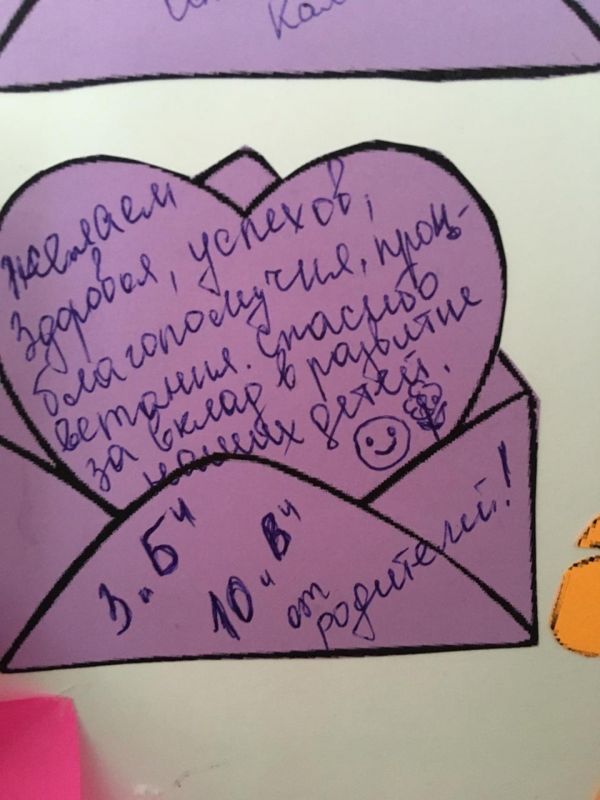 Кал
желаем
здоровья, успехов,
благополучия, проц-
ветания. Спасибо
за вклад в развитие
наших детей.
3 „Б"
10 „В"
от
родителей!